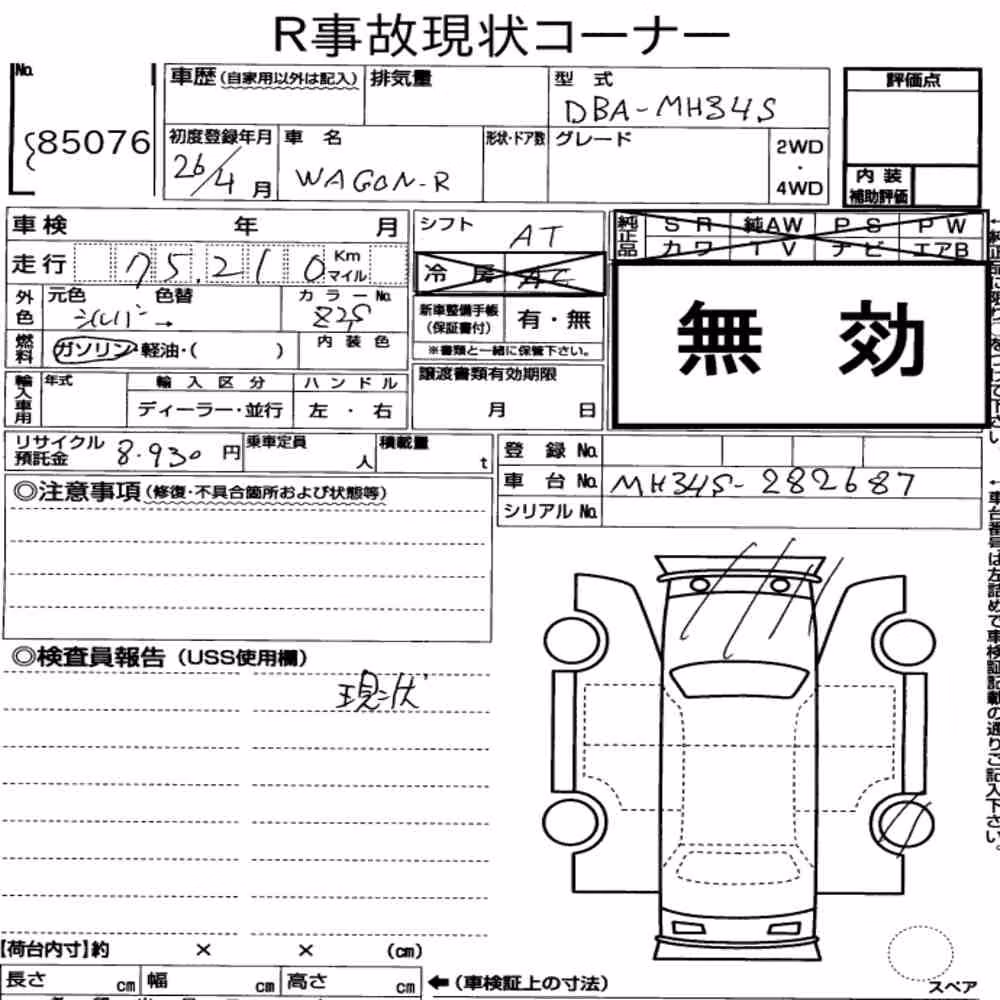 R事故現状コーナー
No. 85076
車歴(自家用以外は記入) 排気量 型式 DBA-MH34S 評価点
初度登録年月 26/4月 車名 WAGON-R 形状・ドア数 グレード 2WD・4WD 内装補助評価
車検 年 月 シフト AT 純正品 SR 純AW PS PW
カワ TV ナビ エアB
走行 75,210 Km マイル 冷房 AC
無効
外色 元色 シルバー 色替 → カラーNo. Z2S 新車整備手帳(保証書付) 有・無
燃料 ガソリン・軽油・( ) 内装色 ※書類と一緒に保管下さい。
輸入車用 年式 輸入区分 ハンドル 譲渡書類有効期限
ディーラー・並行 左・右 月 日
リサイクル預託金 8,930円 乗車定員 人 積載量 t 登録No.
車台No. MH34S-282687
シリアルNo.
◎注意事項(修復・不具合箇所および状態等)
◎検査員報告(USS使用欄)
現状
【荷台内寸】約 × × (cm)
長さ cm 幅 cm 高さ cm ←(車検証上の寸法)
スペア
←車台番号は左詰めで車検証記載の通りご記入下さい。